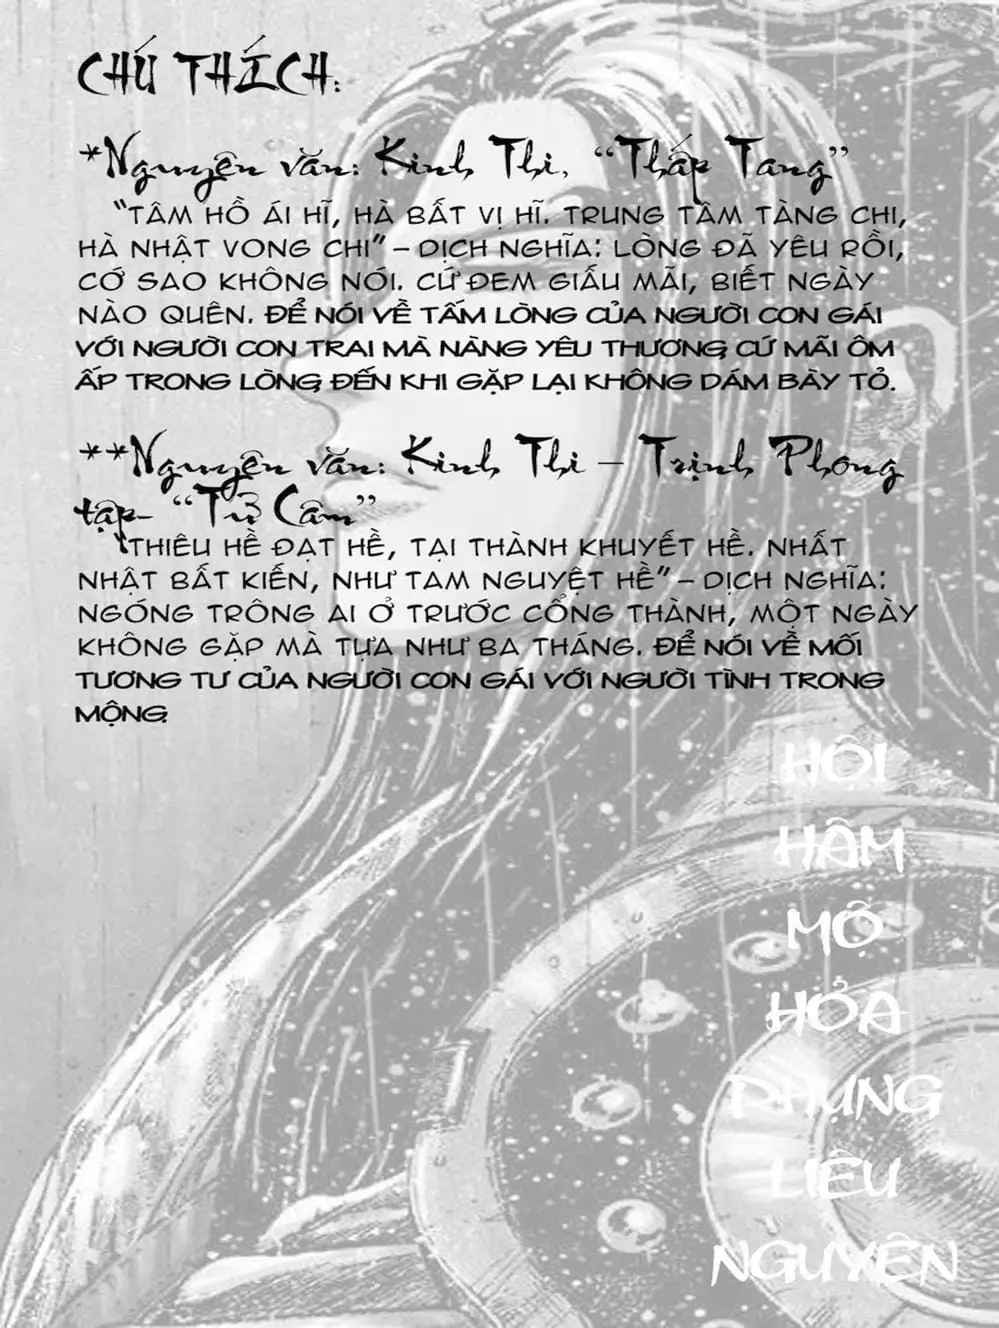 CHÚ THÍCH:
*Nguyên văn: Kinh Thi, “Thấp Tang”
“TÂM HỒ ÁI HĨ, HÀ BẤT VỊ HĨ. TRUNG TÂM TÀNG CHI,
HÀ NHẬT VONG CHI” – DỊCH NGHĨA: LÒNG ĐÃ YÊU RỒI,
CỚ SAO KHÔNG NÓI. CỨ ĐEM GIẤU MÃI, BIẾT NGÀY
NÀO QUÊN. ĐỂ NÓI VỀ TẤM LÒNG CỦA NGƯỜI CON GÁI
VỚI NGƯỜI CON TRAI MÀ NÀNG YÊU THƯƠNG, CỨ MÃI ÔM
ẤP TRONG LÒNG, ĐẾN KHI GẶP LẠI KHÔNG DÁM BÀY TỎ.
**Nguyên văn: Kinh Thi – Trịnh Phong
tập- “Tử Câm”
“THIÊU HỀ ĐẠT HỀ, TẠI THÀNH KHUYẾT HỀ. NHẤT
NHẬT BẤT KIẾN, NHƯ TAM NGUYỆT HỀ” – DỊCH NGHĨA:
NGÓNG TRÔNG AI Ở TRƯỚC CỔNG THÀNH, MỘT NGÀY
KHÔNG GẶP MÀ TỰA NHƯ BA THÁNG. ĐỂ NÓI VỀ MỐI
TƯƠNG TƯ CỦA NGƯỜI CON GÁI VỚI NGƯỜI TÌNH TRONG
MỘNG.
HỘI
HÂM
MỘ
HỎA
PHỤNG
LIÊU
NGUYÊN